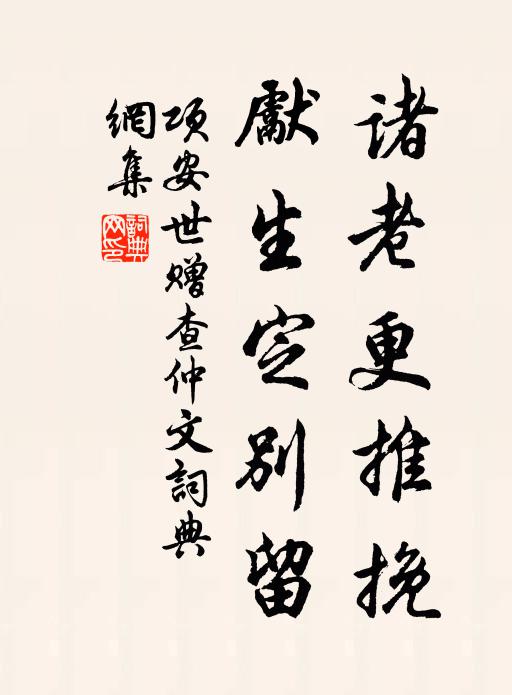 諸老更推挽
獻生定別留
項安世贈查仲文詞典
網集
詞典網印